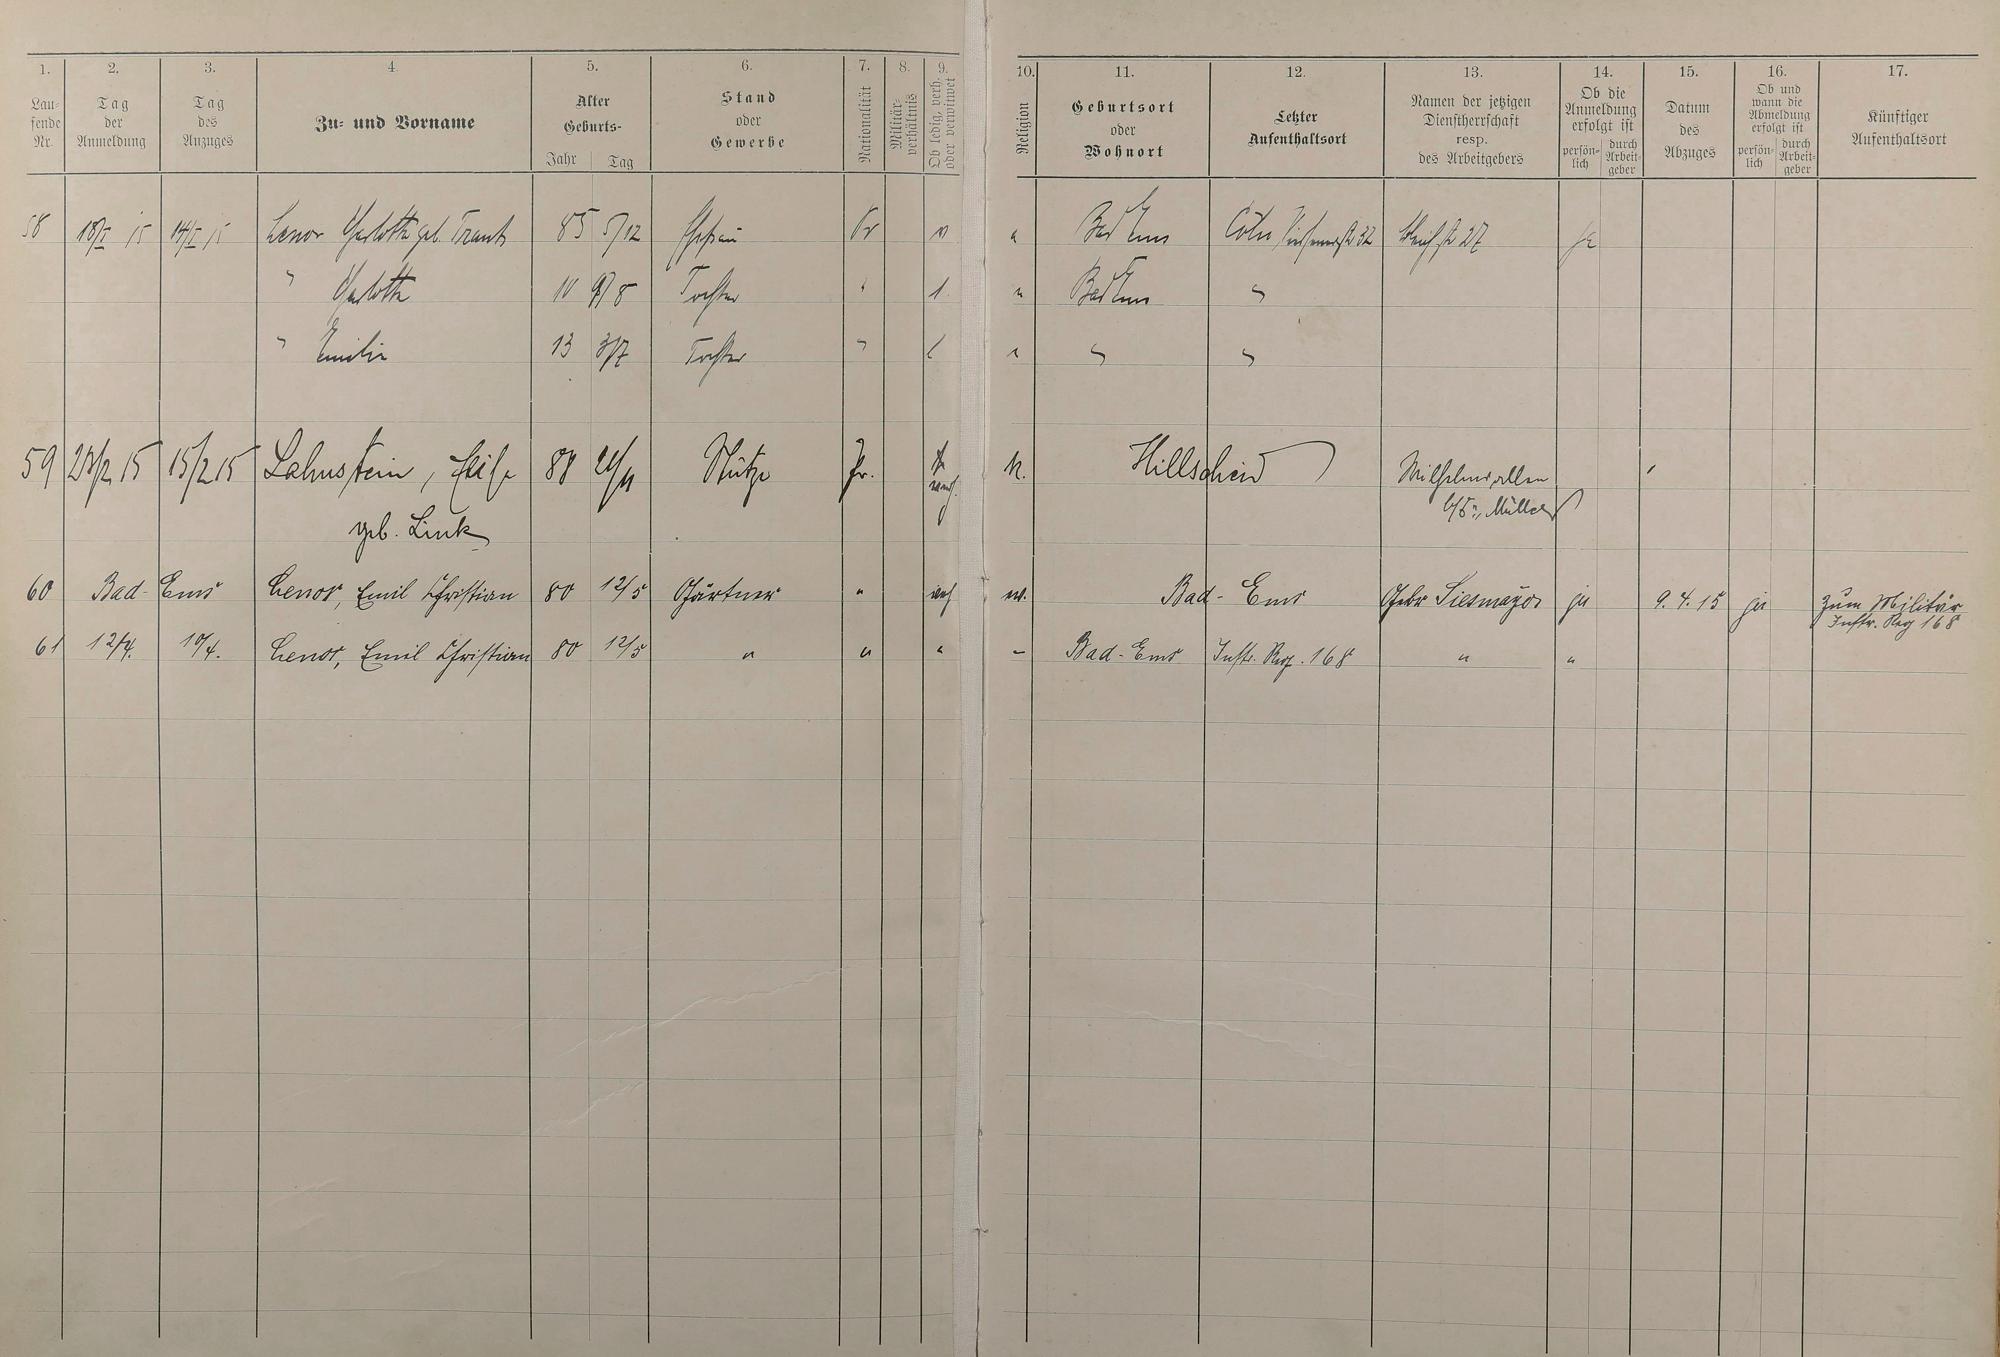 1. 2. 3. 4. 5. 6. 7. 8. 9. 10. 11. 12. 13. 14. 15. 16. 17.
Lau-
fende
Nr.
Tag
der
Anmeldung
Tag
des
Anzuges
Zu- und Vorname
Alter
Geburts-
Jahr Tag
Stand
oder
Gewerbe
Nationalität
Militär-
verhältnis
Ob ledig, verh.
oder verwitwet
Religion
Geburtsort
oder
Wohnort
Letzter
Aufenthaltsort
Namen der jetzigen
Dienstherrschaft
resp.
des Arbeitgebers
Ob die
Anmeldung
erfolgt ist
persön-
lich
durch
Arbeit-
geber
Datum
des
Abzuges
Ob und
wann die
Abmeldung
erfolgt ist
persön-
lich
durch
Arbeit-
geber
Künftiger
Aufenthaltsort
58 18/I 15 14/I 15 Lenor geb. 85 5/12 Ehefrau Pr v Bad Ems Cöln 32 27 ja
" 10 8 Tochter " l " Bad Ems "
" Emilie 13 3/7 Tochter " l " "
59 23/2 15 15/2 15 Lahnstein, 88 Stütze Pr. K. Hillscheid Wilhelmsallee
geb. Link Müller
60 Bad-Ems Lenor, Emil Christian 80 12/5 Gärtner " verh ev. Bad-Ems Gebr Siesmayer ja 9. 4. 15 ja Zum Militär
Inftr. Reg 168
61 12/4. 10/4. Lenor, Emil Christian 80 12/5 " " " – Bad-Ems Inftr. Reg. 168 " "